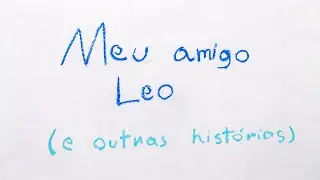 Meu amigo
Leo
(e outras histórias)